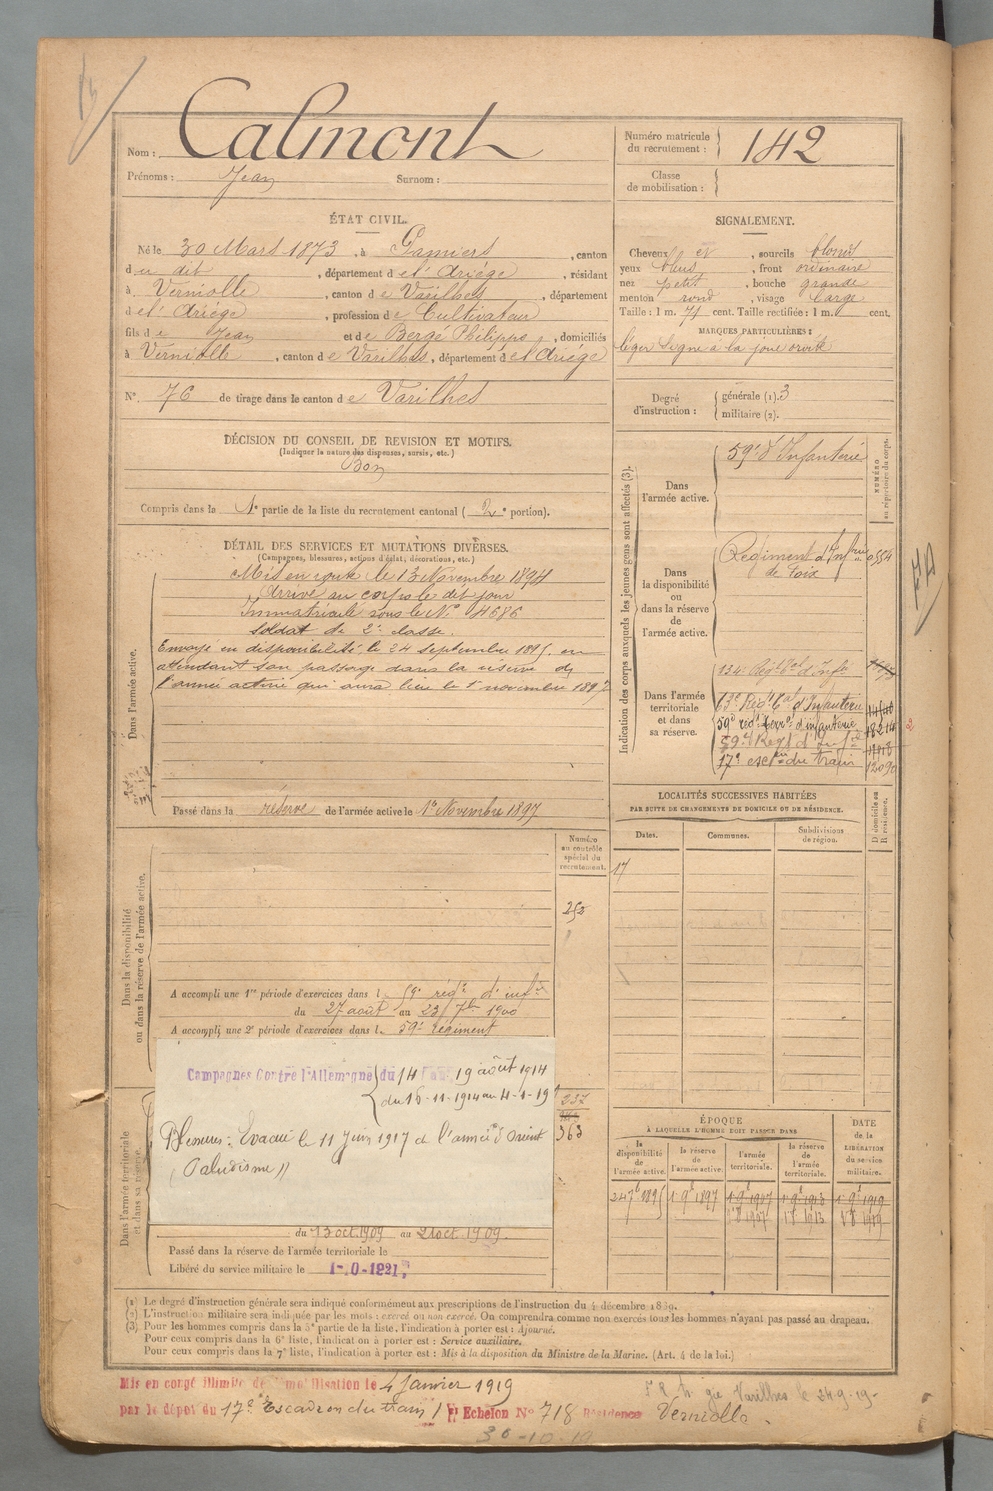 Nom : Calmont
Prénoms : Jean Surnom :
Numéro matricule du recrutement : 142
Classe de mobilisation :
ÉTAT CIVIL.
Né le 30 Mars 1873, à Pamiers, canton
du dit, département de l'Ariège, résidant
à Verniolle, canton de Varilhes, département
de l'Ariège, profession de Cultivateur
fils de Jean et de Bergé Philippe, domiciliés
à Verniolle, canton de Varilhes, département de l'Ariège
N° 76 de tirage dans le canton de Varilhes
SIGNALEMENT.
Cheveux et, sourcils blonds
yeux bleus, front ordinaire
nez petit, bouche grande
menton rond, visage large
Taille : 1 m. 71 cent. Taille rectifiée : 1 m. cent.
MARQUES PARTICULIÈRES :
léger signe à la joue droite
Degré d'instruction : générale (1). 3
militaire (2).
DÉCISION DU CONSEIL DE REVISION ET MOTIFS.
(Indiquer la nature des dispenses, sursis, etc.)
Bon
Compris dans la 1e partie de la liste du recrutement cantonal (2e portion).
DÉTAIL DES SERVICES ET MUTATIONS DIVERSES.
(Campagnes, blessures, actions d'éclat, décorations, etc.)
Dans l'armée active.
Mis en route le 13 Novembre 1894
Arrivé au corps le dit jour
Immatriculé sous le N° 4686
Soldat de 2e classe.
Envoyé en disponibilité le 24 Septembre 1895 en
attendant son passage dans la réserve de
l'armée active qui aura lieu le 1er novembre 1897
Passé dans la réserve de l'armée active le 1er Novembre 1897
Indication des corps auxquels les jeunes gens sont affectés (3).
NUMÉRO au répertoire du corps.
Dans l'armée active.
59e d'Infanterie
Dans la disponibilité ou dans la réserve de l'armée active.
Régiment d'Infrie 0554
de Foix
Dans l'armée territoriale et dans sa réserve.
134e Régt tal d'Infie
59e régt terral d'infanterie
59e Regt d'Infie
17e escon du train 12090
LOCALITÉS SUCCESSIVES HABITÉES
PAR SUITE DE CHANGEMENTS DE DOMICILE OU DE RÉSIDENCE.
Dates. Communes. Subdivisions de région. D domicile ou R résidence.
17
Dans la disponibilité ou dans la réserve de l'armée active.
Numéro au contrôle spécial du recrutement.
252
A accompli une 1re période d'exercices dans l. 59e régt d'infie
du 27 août au 23 7bre 1900
A accompli une 2e période d'exercices dans l. 59e Régiment
Campagnes Contre l'Allemagne du 14 au 19 août 1914
du 16-11-1914 au 4-1-19
Blessures : Evacué le 11 Juin 1917 de l'armée d'Orient
(Paludisme)
237
363
Dans l'armée territoriale et dans sa réserve.
du 13 oct. 1909 au 21 oct. 1909.
Passé dans la réserve de l'armée territoriale le
Libéré du service militaire le
ÉPOQUE
À LAQUELLE L'HOMME DOIT PASSER DANS
la disponibilité de l'armée active. la réserve de l'armée active. l'armée territoriale. la réserve de l'armée territoriale.
DATE de la LIBÉRATION du service militaire.
24 7b 1895 1 9b 1897 1 9b 1907 1 9b 1913 1 9b 1919
(1) Le degré d'instruction générale sera indiqué conformément aux prescriptions de l'instruction du 4 décembre 1889.
(2) L'instruction militaire sera indiquée par les mots : exercé ou non exercé. On comprendra comme non exercés tous les hommes n'ayant pas passé au drapeau.
(3) Pour les hommes compris dans la 5e partie de la liste, l'indication à porter est : Ajourné.
Pour ceux compris dans la 6e liste, l'indication à porter est : Service auxiliaire.
Pour ceux compris dans la 7e liste, l'indication à porter est : Mis à la disposition du Ministre de la Marine. (Art. 4 de la loi.)
Mis en congé illimité de démobilisation le 4 Janvier 1919
par le dépôt du 17e Escadron du train Echelon N° 718 Résidence Verniolle.
Varilhes le 24-9-19-
30-10-19